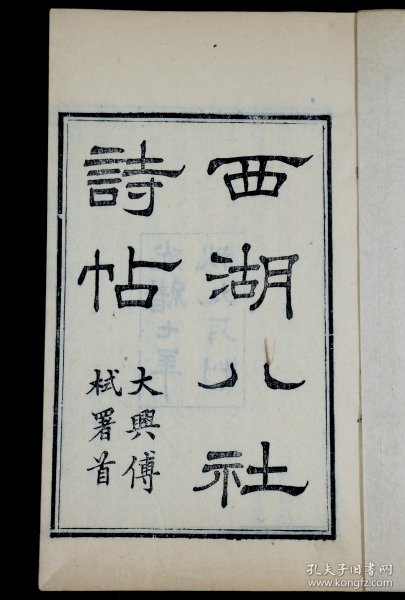 西湖八社
詩帖
大興傅
栻署首
孔夫子旧书网
www.kongfz.com